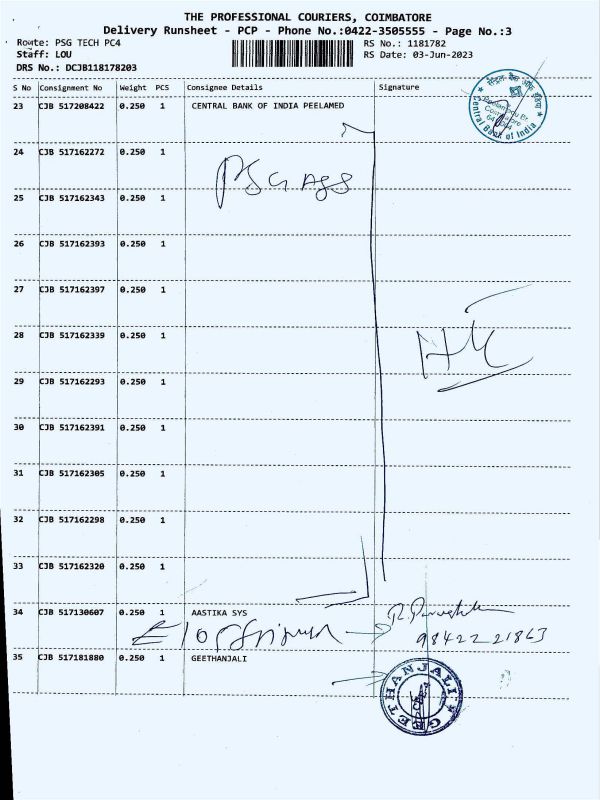 THE PROFESSIONAL COURIERS, COIMBATORE
Delivery Runsheet - PCP - Phone No.:0422-3505555 - Page No.:3
Route: PSG TECH PC4
RS No.: 1181782
Staff: LOU
RS Date: 03-Jun-2023
DRS No.: DCJB118178203
S No Consignment No Weight PCS Consignee Details Signature
23 CJB 517208422 0.250 1 CENTRAL BANK OF INDIA PEELAMED
सेन्ट्रल बैंक ऑफ इंडिया
Coimbatore
Central Bank of India
24 CJB 517162272 0.250 1
PSG
25 CJB 517162343 0.250 1
26 CJB 517162393 0.250 1
27 CJB 517162397 0.250 1
28 CJB 517162339 0.250 1
29 CJB 517162293 0.250 1
30 CJB 517162391 0.250 1
31 CJB 517162305 0.250 1
32 CJB 517162298 0.250 1
33 CJB 517162320 0.250 1
34 CJB 517130607 0.250 1 AASTIKA SYS
9842221863
35 CJB 517181880 0.250 1 GEETHANJALI
GEETHANJALI